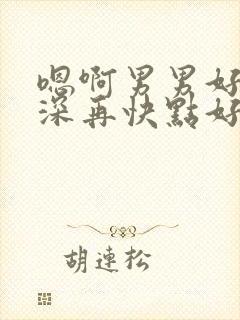 嗯啊男男好
深再快點好
胡連松